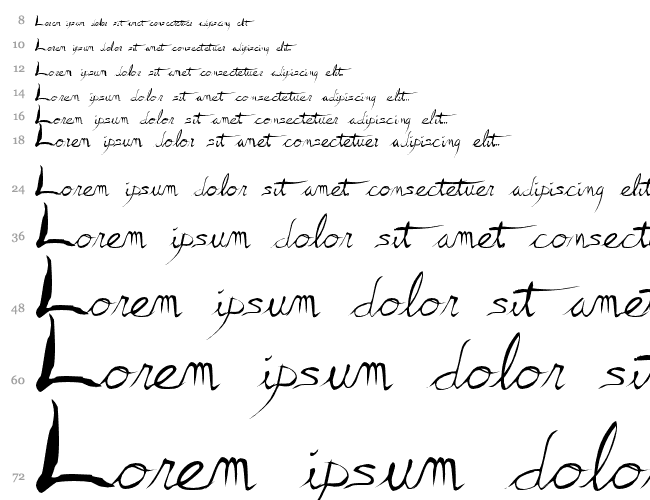 8 Lorem ipsum dolor sit amet consectetuer adipiscing elit..
10 Lorem ipsum dolor sit amet consectetuer adipiscing elit..
12 Lorem ipsum dolor sit amet consectetuer adipiscing elit..
14 Lorem ipsum dolor sit amet consectetuer adipiscing elit..
16 Lorem ipsum dolor sit amet consectetuer adipiscing elit..
18 Lorem ipsum dolor sit amet consectetuer adipiscing elit..
24 Lorem ipsum dolor sit amet consectetuer adipiscing elit
36 Lorem ipsum dolor sit amet consect
48 Lorem ipsum dolor sit ame
60 Lorem ipsum dolor si
72 Lorem ipsum dolo